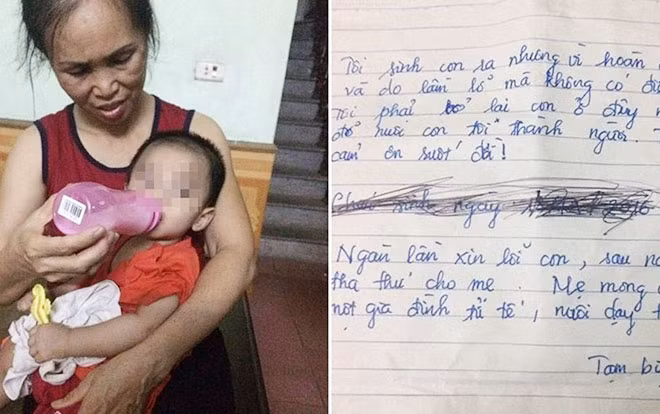 Tôi sinh con sa nhưng vì hoàn
và do lầm lỡ mà không có
Tôi phải bỏ lại con ở đây
nuôi con tôi thành người.
cảm ơn suốt đời!
sinh ngày 2016
Ngàn lần xin lỗi con, sau
tha thứ cho mẹ. Mẹ mong
một gia đình tử tế, nuôi dạy
Tạm